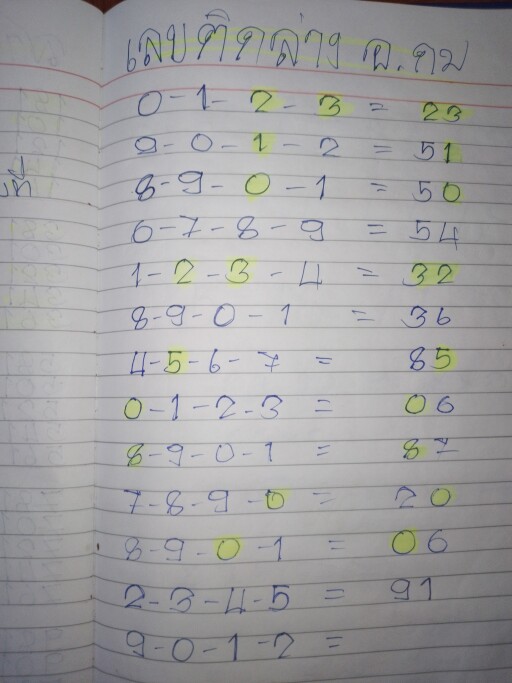 เลขติดล่าง อ.คม
0-1-2-3 = 23
9-0-1-2 = 51
8-9-0-1 = 50
6-7-8-9 = 54
1-2-3-4 = 32
8-9-0-1 = 36
4-5-6-7 = 85
0-1-2-3 = 06
8-9-0-1 = 87
7-8-9-0 = 20
8-9-0-1 = 06
2-3-4-5 = 91
9-0-1-2 =